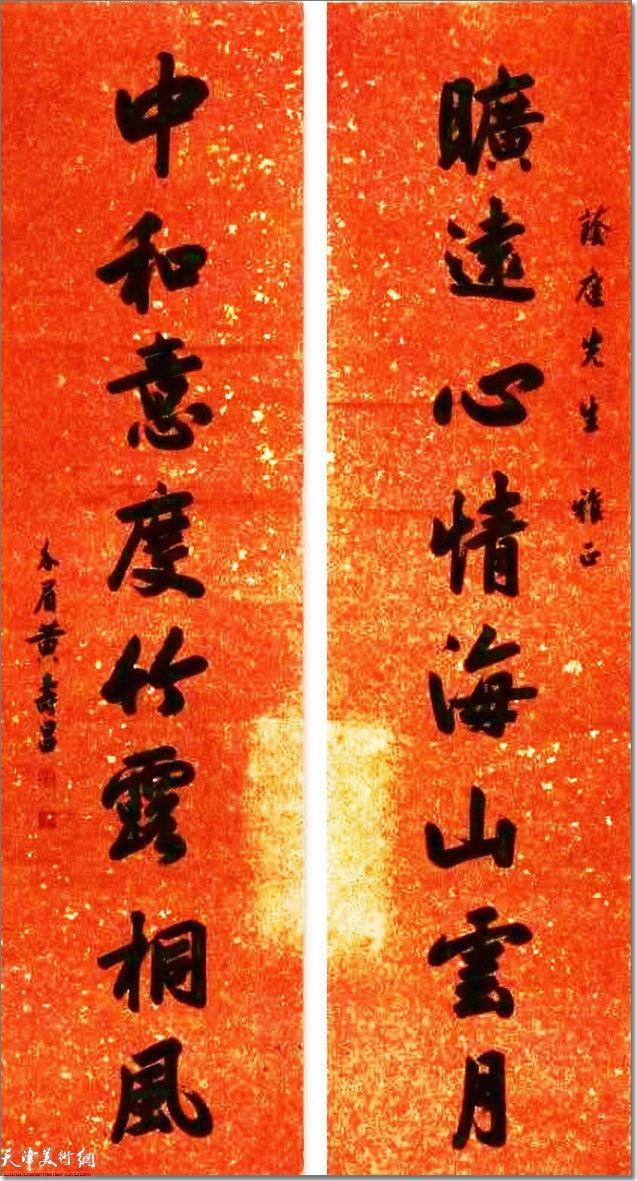 蔭庭先生雅正
曠遠心情海山雲月
中和意度竹露桐風
介眉黄壽昌
天津美術網